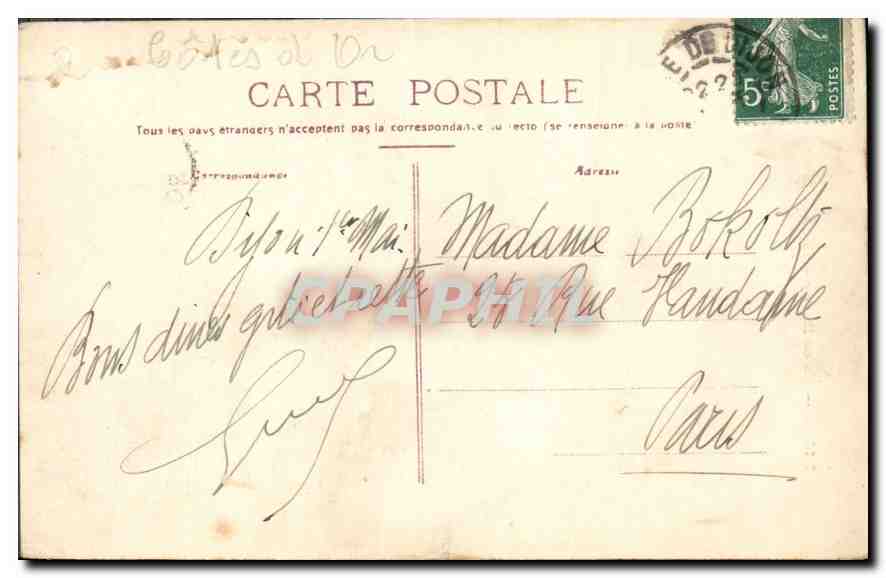 Côtes d'Or
CARTE POSTALE
Tous les pays étrangers n'acceptent pas la correspondance au recto (se renseigner à la poste
Correspondance
Adresse
DE DIJON
5c
POSTES
Dijon 1er Mai.
Bons dîners
Madame Bokoltz
Rue Vandamme
Paris
CPAPHIL